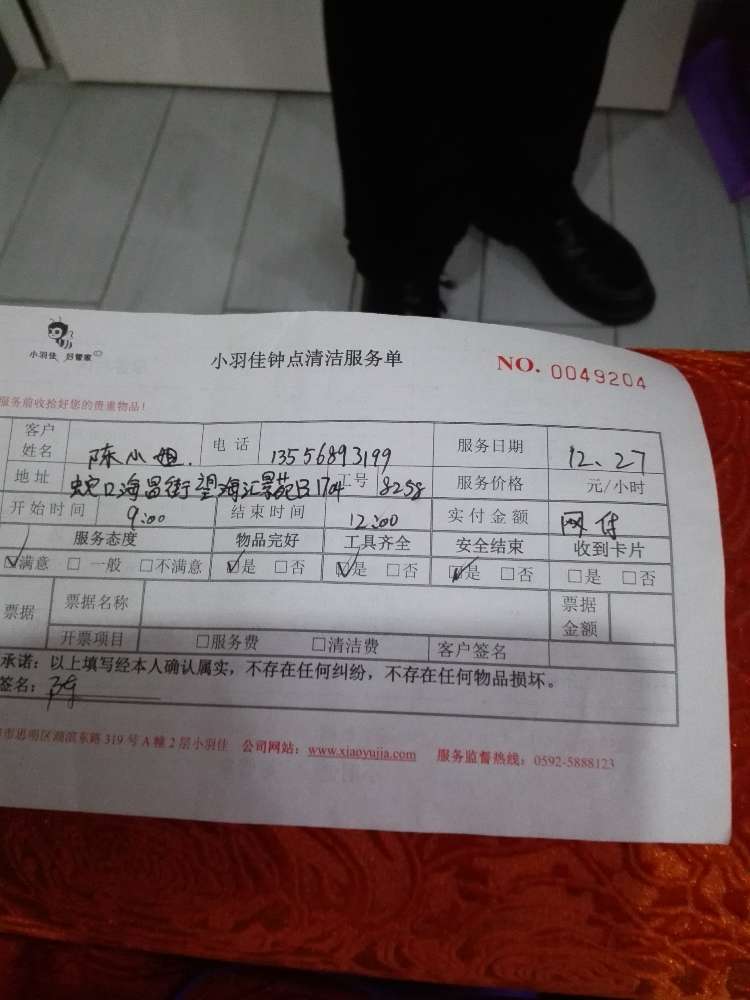 小羽佳 好管家
小羽佳钟点清洁服务单
NO. 0049204
服务前收拾好您的贵重物品!
客户姓名 陈小姐. 电话 13556893199 服务日期 12、27
地址 蛇口海昌街望海汇景苑B1704 工号 8258 服务价格 元/小时
开始时间 9:00 结束时间 12:00 实付金额 网付
服务态度 物品完好 工具齐全 安全结束 收到卡片
☑满意 □ 一般 □不满意 ☑是 □否 ☑是 □否 ☑是 □否 □是 □否
票据 票据名称 票据金额
开票项目 □服务费 □清洁费 客户签名
承诺：以上填写经本人确认属实，不存在任何纠纷，不存在任何物品损坏。
签名：陈
市思明区湖滨东路 319 号 A 幢 2 层小羽佳 公司网站：www.xiaoyujia.com 服务监督热线：0592-5888123